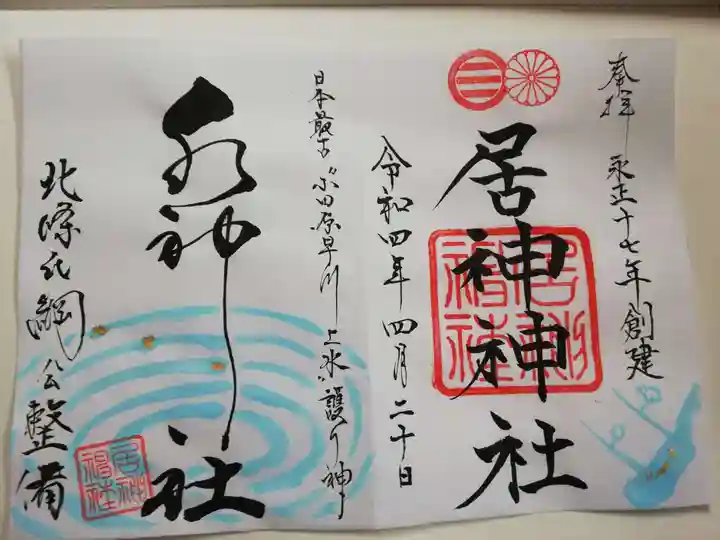 奉拝 永正十七年創建
居神神社
令和四年四月二十日
日本最古"小田原早川上水"護り神
水神社
北條氏綱公整備
居神神社